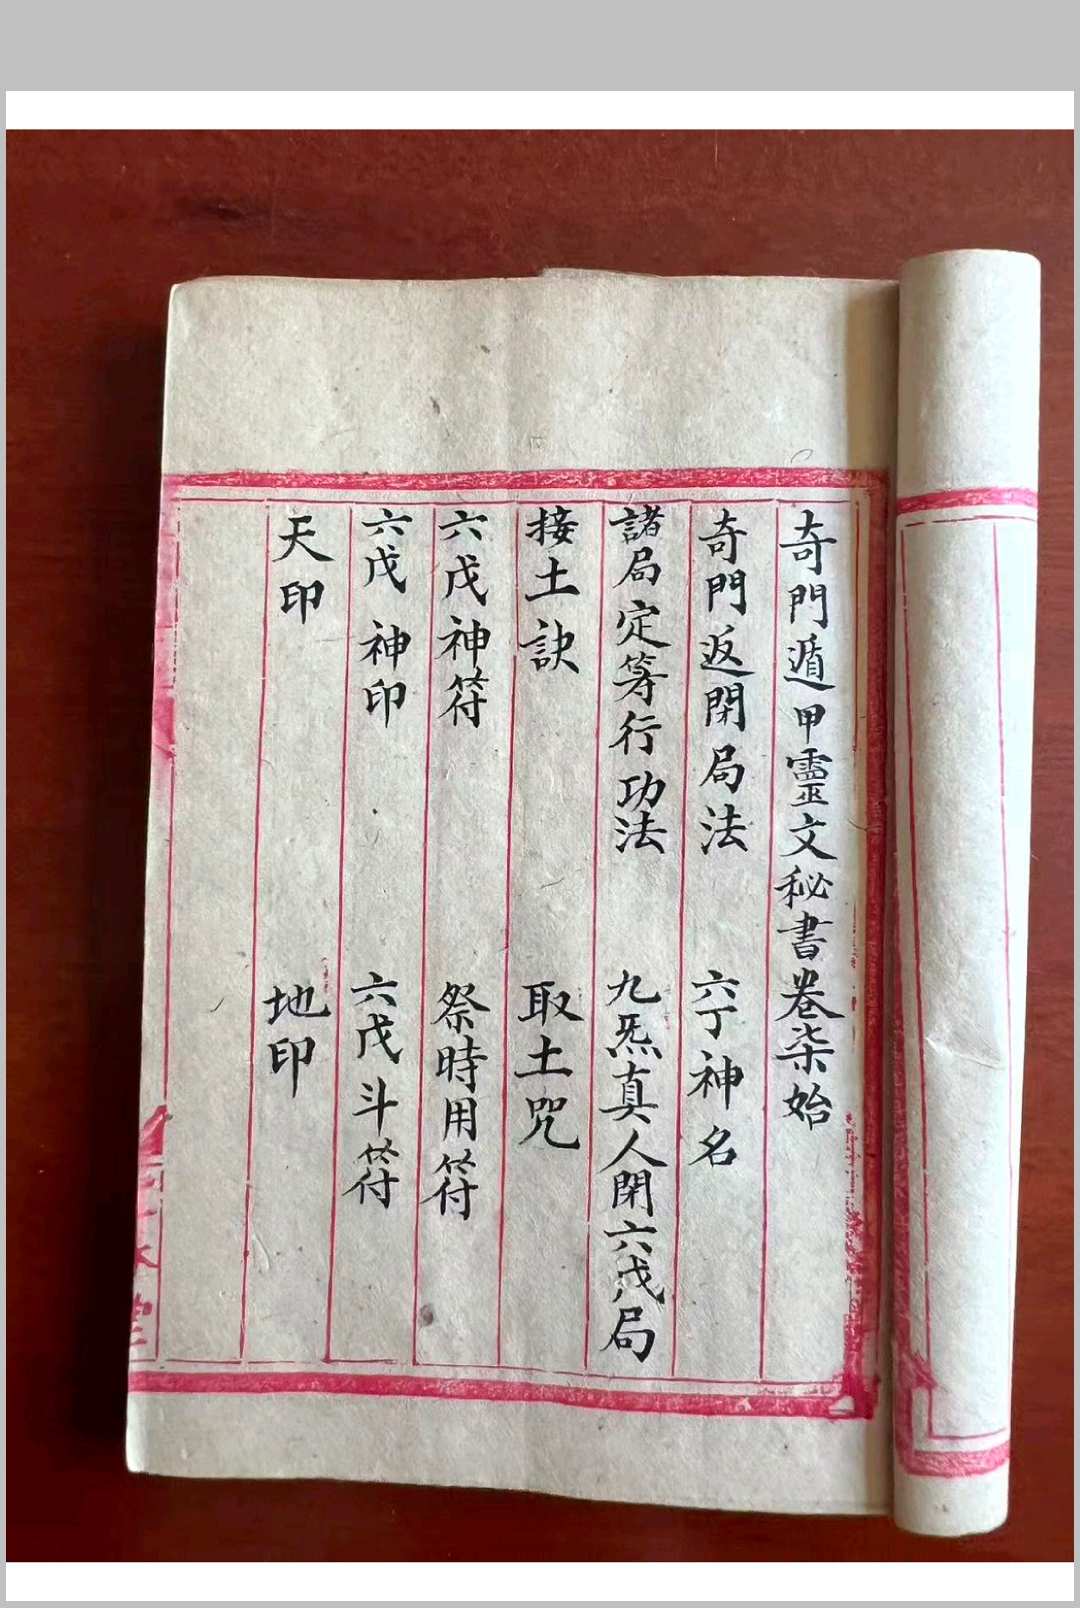 奇門遁甲靈文秘書卷柒始
奇門返閉局法 六丁神名
諸局定筹行功法 九炁真人閉六戊局
接土訣 取土呪
六戊神符 祭時用符
六戊神印 六戊斗符
天印 地印